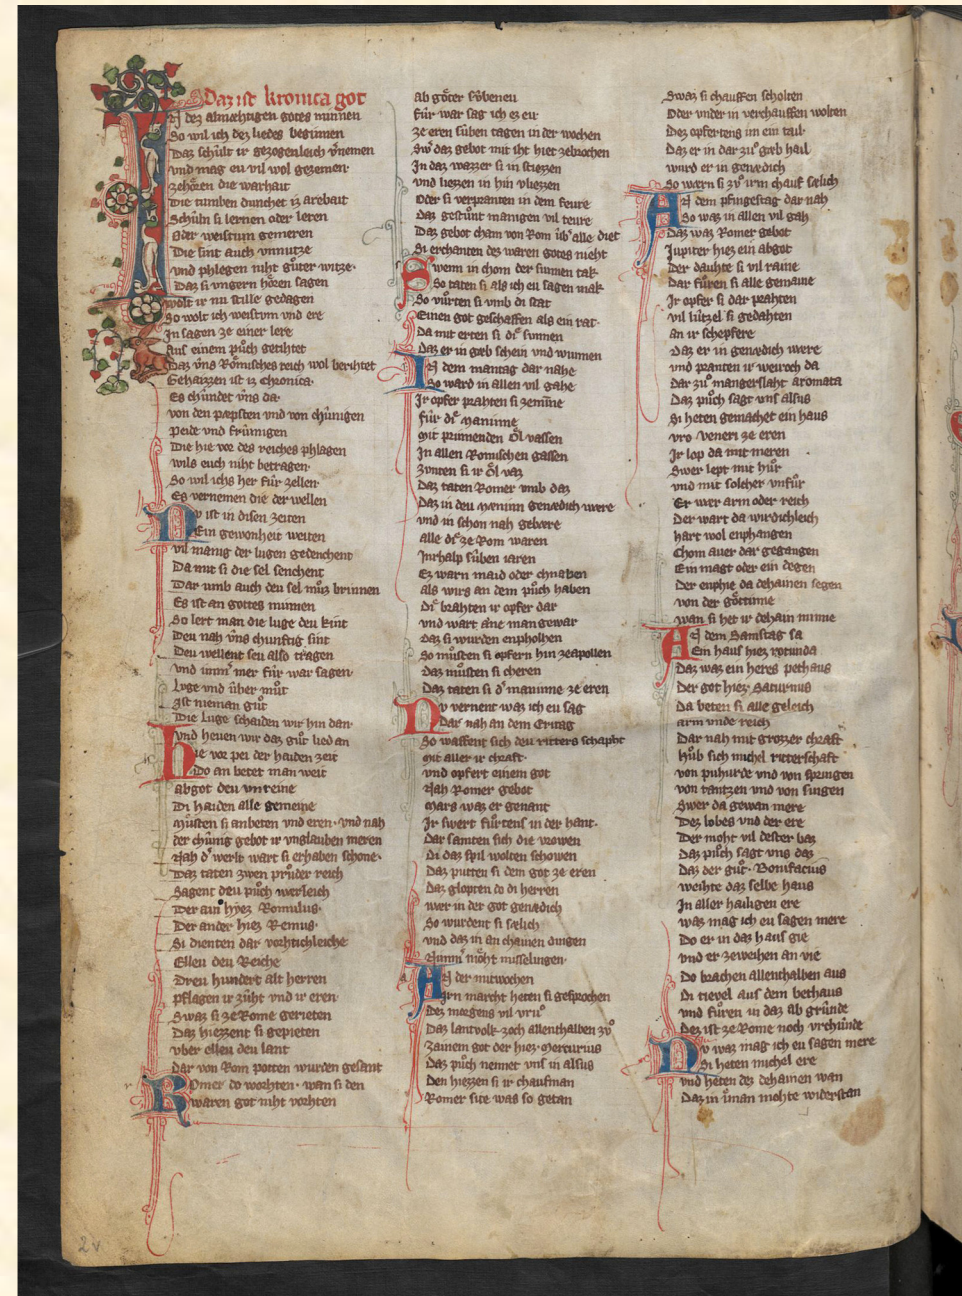 Daz ist kronica got
IN dez almæchtigen gotes minnen
So wil ich dez liedes beginnen
Daz schült ir gezogenleich v̓nemen
vnd mag eu vil wol gezemen
zehören die warhait
Die tumben dunchet iz arebait
Schüln si lernen oder leren
Oder weistum gemeren
Die sint auch vnnutze
vnd phlegen niht gůter witze
Daz si vngern hörn sagen
wolt ir nu stille gedagen
So wolt ich weistvm vnd ere
In sagen ze einer lere
Aus einem půch getihtet
Daz v̓ns Römisches reich wol berihtet
Gehaizzen ist iz chronica
Es chündet v̓ns da
von den pæpsten vnd von chünigen
Peide vnd frümigen
Die hie vor des reiches phlagen
wils euch niht betragen
So wil ichs her für zellen
Es vernemen die der wellen
Nv ist in disen zeiten
Ein gewonheit weiten
vil manig der lugen gedenchent
Da mit si die sel senchent
Dar vmb auch deu sel můz brinnen
Es ist an gottes minnen
So lert man die luge deu kint
Deu nah v̓ns chunftig sint
Deu wellent seu also tragen
vnd imm̓ mer für war sagen
Luge vnd über můt
Ist nieman gůt
Die Luge schaiden wir hin dan
vnd heuen wir daz gůt lied an
Hie vor pei der haiden zeit
Do an betet man weit
abgot deu vnreine
Di haiden alle gemeine
Můsten si anbeten vnd eren vnd nah
der chünig gebot ir vnglauben meren
Nah d̓ werlt wart si erhaben schone
Daz taten zwen prüder reich
Sagent deu půch werleich
Der ain hyez Romulus
Der ander hiez Remus
Si dienten dar vorhtichleiche
Elleu deu Reiche
Dreu hundert alt herren
pflagen ir züht vnd ir eren
Swaz si ze Rome gerieten
Daz hiezzent si gepieten
vber elleu deu lant
Dar von Rom potten wurden gesant
Romer do worhten wan si den
waren got niht vorhten
ab göter syͤbeneu
für war sag ich ez eu
ze eren süben tagen in der wochen
Sw̓ daz gebot mit iht hiet zebrochen
In daz wazzer si in stiezzen
vnd liezzen in hin vliezzen
Oder si verpranten in dem feure
daz gestůnt manigen vil teure
Daz gebot cham von Rom üb̓ alle diet
Si erchanten dez waren gotes nieht
Swein in chom der sunnen tak
So taten si als ich eu sagen mak
So vůrten si vmb di stat
Einen got geschaffen als ein rat
Da mit erten si di sunnen
Daz er in gæb schein vnd wunnen
An dem mantag dar nahe
So ward in allen vil gahe
Ir opfer prahten si zemůne
für di Maninne
mit prinnenden Öl vassen
In allen Romischen gassen
zvnten si ir Öl vaz
Daz taten Romer vmb daz
Daz in deu Meninn genædich were
vnd in schon nah gebere
alle di ze Rom waren
Inrhalp süben iaren
Ez warn maid oder chnaben
als wirs an dem půch haben
Di brahten ir opfer dar
vnd wart ane man gewar
daz si wurden enpholhen
So můsten si opfern hin zeapollen
Daz můsten si cheren
Daz taten si d̓ maninne ze eren
Nv vernent waz ich eu sag
Dar nah an dem Eritag
So waffent sich deu ritters schapht
mit aller ir chraft
vnd opfert einem got
Nah Romer gebot
Mars waz er genant
Ir swert fürtens in der hant
Dar samten sich die vrowen
Di daz spil wolten schowen
Daz putten si dem got ze eren
Daz glopten do di herren
wer in der got genædich
So wurdent si sælich
vnd daz in an chainen dingen
Nimm̓ möht misselingen
An der mitwochen
Irn marcht heten si gesprochen
Dez morgens vil vrů
Daz lantvolk zoch allenthalben zů
Zainem got der hiez Mercurius
Daz půch nennet vns in alsus
Den hiezzen si ir chaufman
Romer site was so getan
Swaz si chauffen scholten
Oder vnder in verchauffen wolten
Dez opfertens im ein tail
Daz er in dar zů gæb hail
wurd er in genædich
So wærn si zů irm chauf sælich
An dem pfingstag dar nah
So waz in allen vil gah
Daz waz Romer gebot
Jupiter hiez ein abgot
Der dauhte si vil raine
Dar fůren si alle gemaine
Ir opfer si dar prahten
vil lützel si gedahten
an ir schepfere
Daz er in genædich were
vnd pranten ir weiroch da
Dar zů mangerslaht aromata
Daz půch sagt vns alsus
Si heten gemachet ein haus
vro veneri ze eren
Ir lop da mit meren
Swer lept mit hůr
vnd mit solcher vnfůr
Er wer arm oder reich
Der wart da wirdichleich
hart wol enphangen
Chom auer dar gegangen
Ein magt oder ein degen
Der enphie da dehainen segen
von der göttinne
wan si het ir dehain minne
An dem Samstag sa
Ein haus hiez rotunda
Daz waz ein heres pethaus
Der got hiez Saturnus
Da beten si alle geleich
arm vnde reich
Dar nah mit grozzer chraft
hůb sich michel ritterschaft
von puhurde vnd von springen
von tantzen vnd von singen
Swer da gewan mere
Dez lobes vnd der ere
Der moht vil dester baz
Daz půch sagt vns daz
Daz der gůt Bonifacius
weihte daz selbe haus
In aller hailigen ere
waz mag ich eu sagen mere
Do er in daz haus gie
vnd er zeweihen an vie
Do brachen allenthalben aus
Di tieuel aus dem bethaus
vnd fůren in daz ab gründe
Dez ist ze Rome noch vrchünde
Nv waz mag ich eu sagen mere
Si heten michel ere
vnd heten dez dehainen wan
Daz in iman mohte widerstan
2v